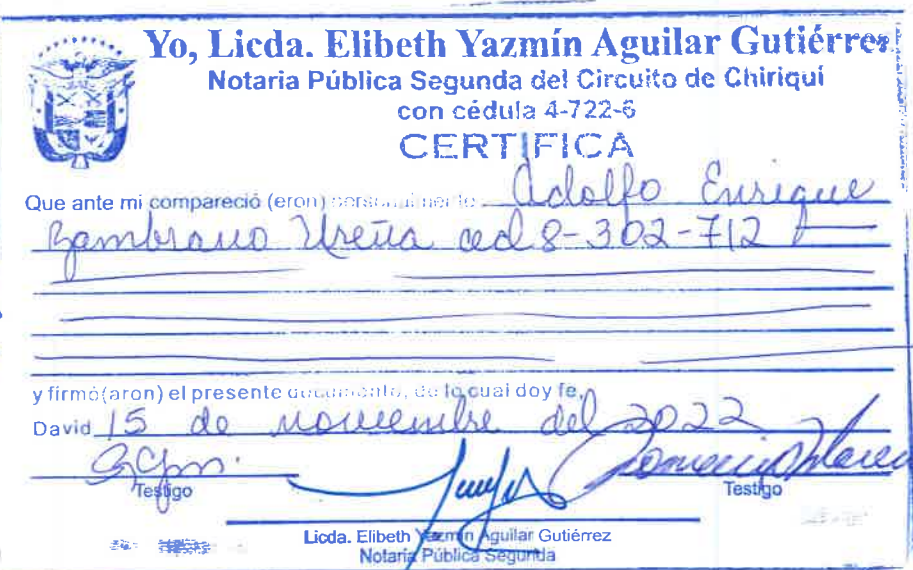 Yo, Licda. Elibeth Yazmín Aguilar Gutiérrez
Notaria Pública Segunda del Circuito de Chiriquí
con cédula 4-722-6
CERTIFICA
Que ante mi compareció (eron) personalmente Adolfo Enrique
Zambrano Ureña ced 8-302-712
y firmó(aron) el presente documento, de lo cual doy fe,
David 15 de noviembre del 2022
Testigo
Testigo
Licda. Elibeth Yazmín Aguilar Gutiérrez
Notaria Pública Segunda